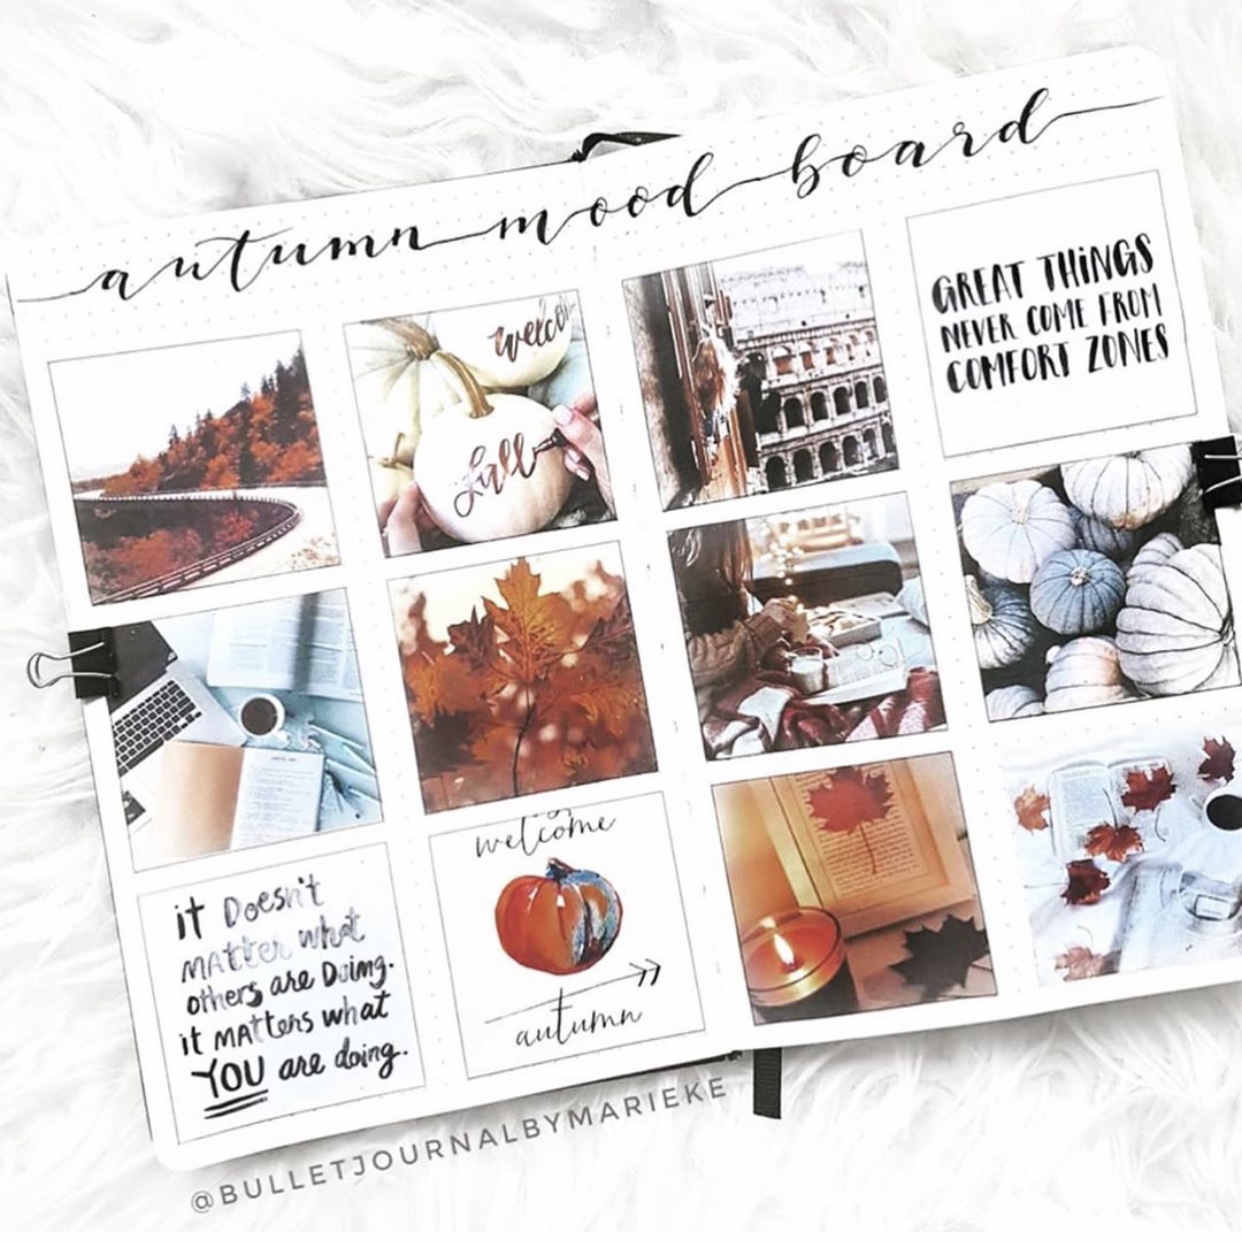 autumn mood board
welco
fall
GREAT THiNGS
NEVER COME FROM
COMFORT ZONES
iT Doesn't
MAtter what
others are Doing.
it MAtters what
YOU are doing.
welcome
autumn
@BULLETJOURNALBYMARIEKE